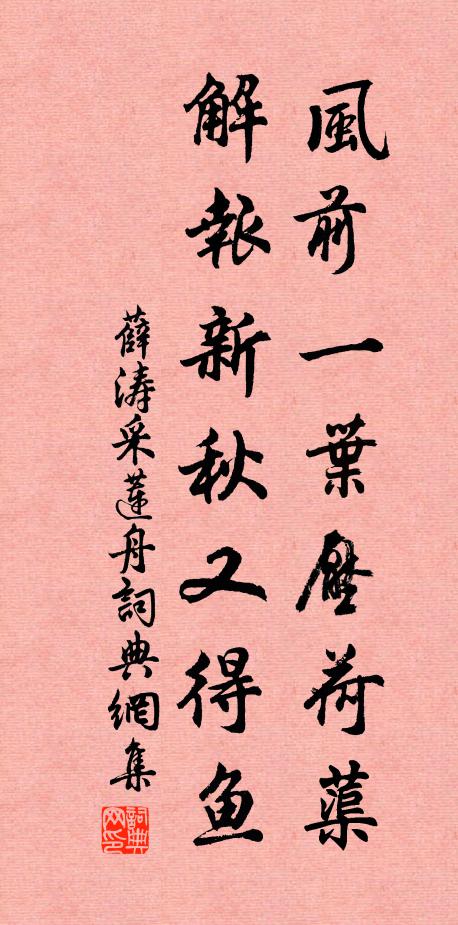 風前一葉壓荷蕖
解報新秋又得魚
薛涛采蓮舟詞典網集
詞典网印